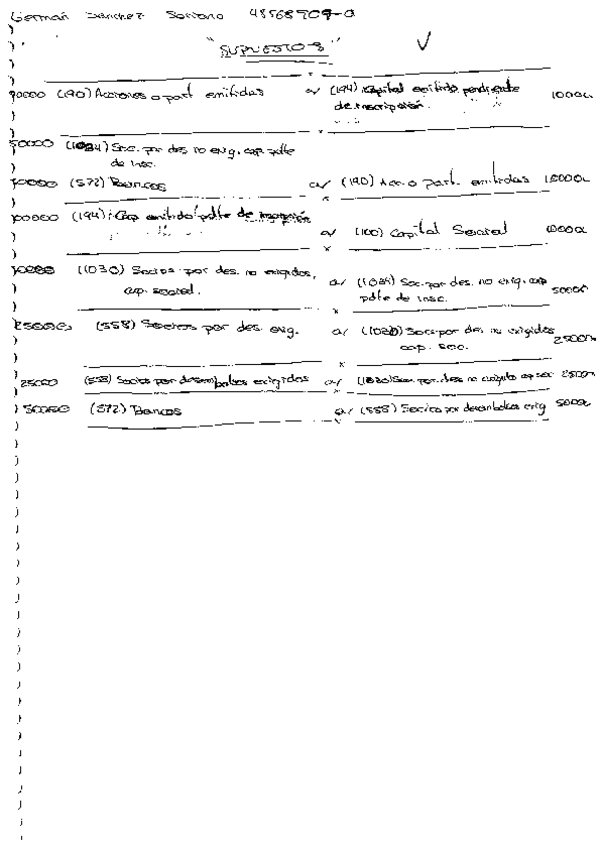 Germán Sánchez Soriano 48568909-Q
"SUPUESTO 3" V
(190) Acciones o part. emitidas a/ (194) Capital emitido pendiente de inscripción. 10000
(1034) Soc. por des no exig. cap. pdte
de insc.
(572) Bancos a/ (190) Acc. o part. emitidas
(194) Cap emitido pdte de inscripción
a/ (100) Capital Social
(1030) Socios por des. no exigidos,
cap. social. a/ (1034) Soc. por des. no exig. cap
pdte de insc.
(558) Socios por des. exig. a/ (1030) Soc. por des. no exigidos
cap. soc.
25000 (558) Socios por desembolsos exigidos a/ (1030) Soc. por des no exigido cap soc
50000 (572) Bancos a/ (558) Socios por desembolsos exig